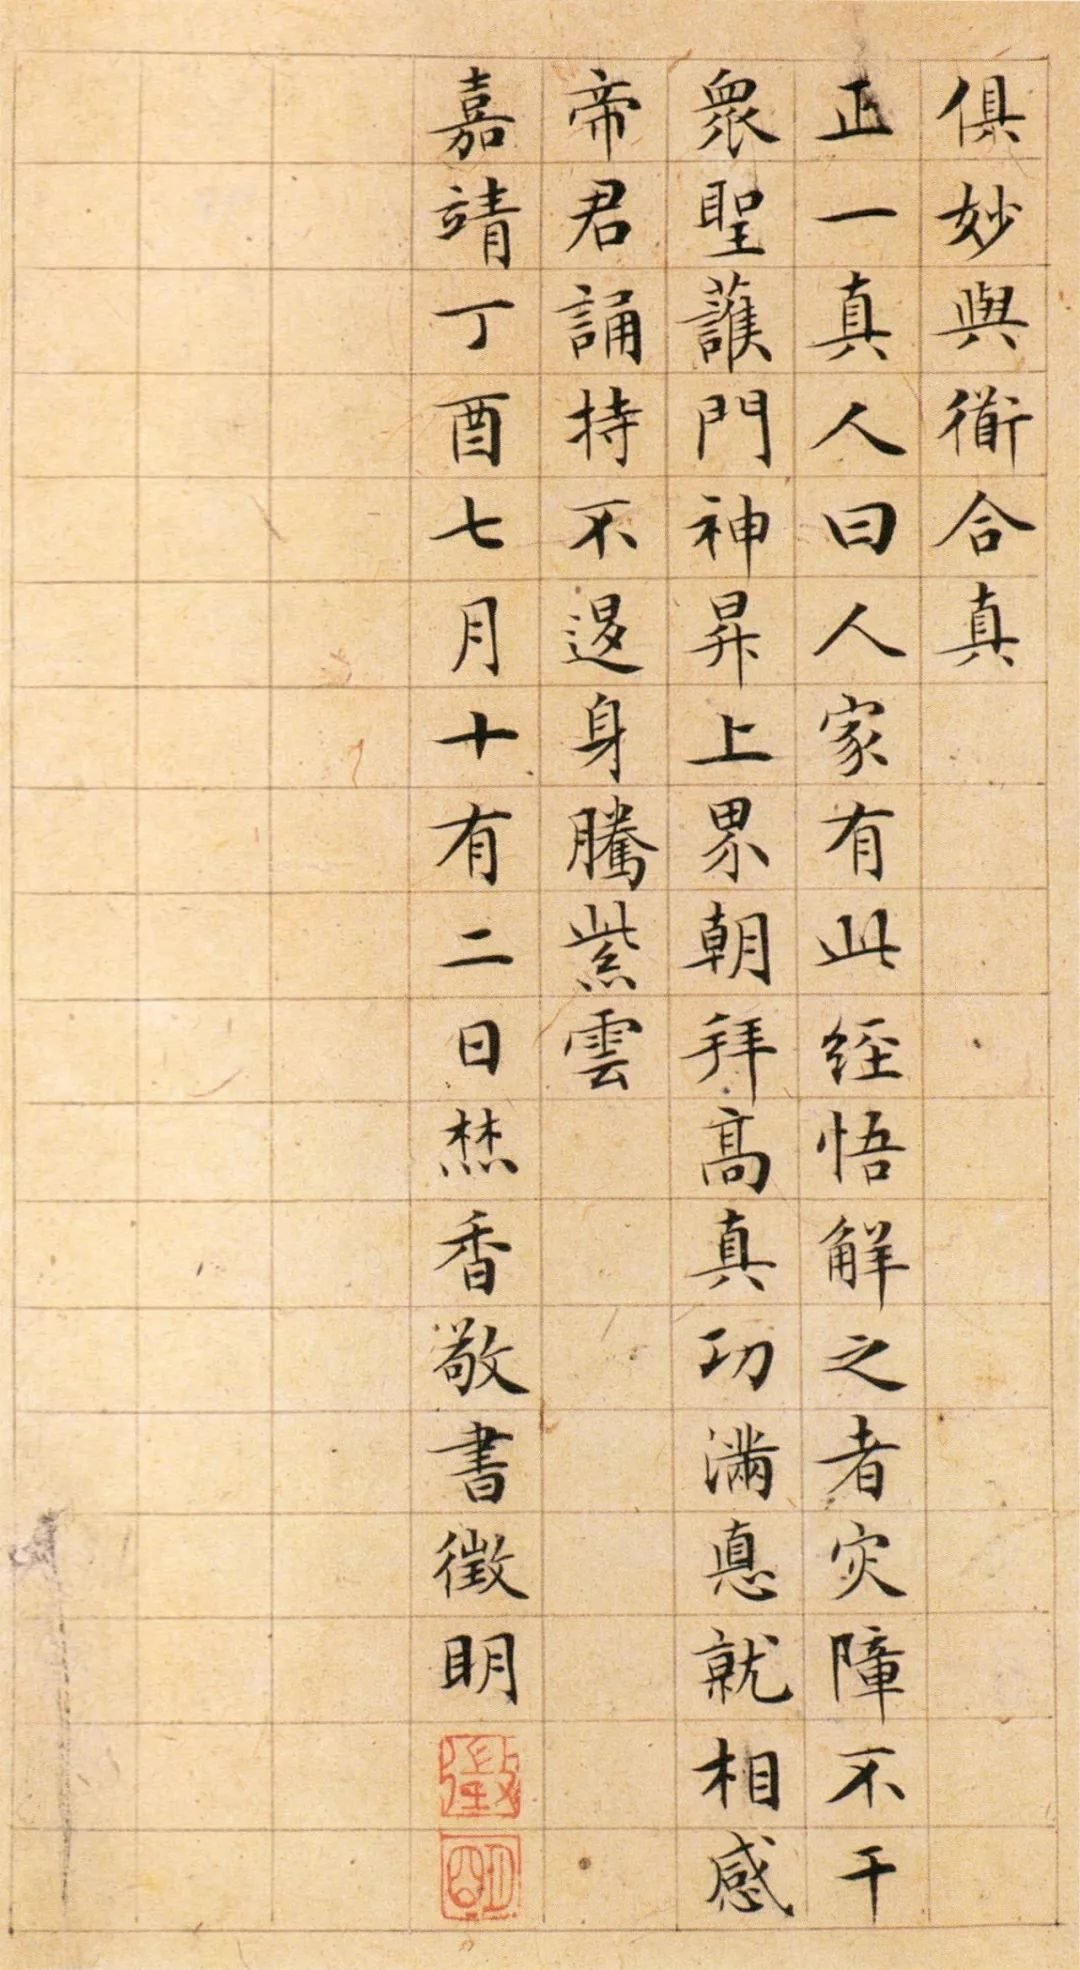 俱妙與衜合真
正一真人曰人家有此經悟解之者灾障不干
衆聖護門神昇上界朝拜高真功滿惪就相感
帝君誦持不退身騰紫雲
嘉靖丁酉七月十有二日焚香敬書徵明
徵
明